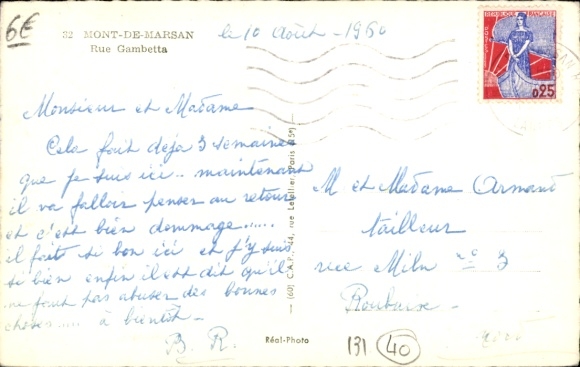 6€
32 MONT-DE-MARSAN
Rue Gambetta
le 10 Août - 1960
REPUBLIQUE FRANÇAISE
0,25
Monsieur et Madame
Cela fait déja 3 semaines
que je suis ici .. maintenant
il va falloir penser au retour
et c'est bien dommage.....
il fait si bon ici et j'y suis
si bien enfin il est dit qu'il
ne faut pas abuser des bonnes
choses..... à bientôt -
B. R.
(60) C.A.P. - 44, rue Letellier, Paris (15e)
M et Madame Armand
tailleur
rue Miln n° 3
Roubaix -
Réal-Photo
131
40